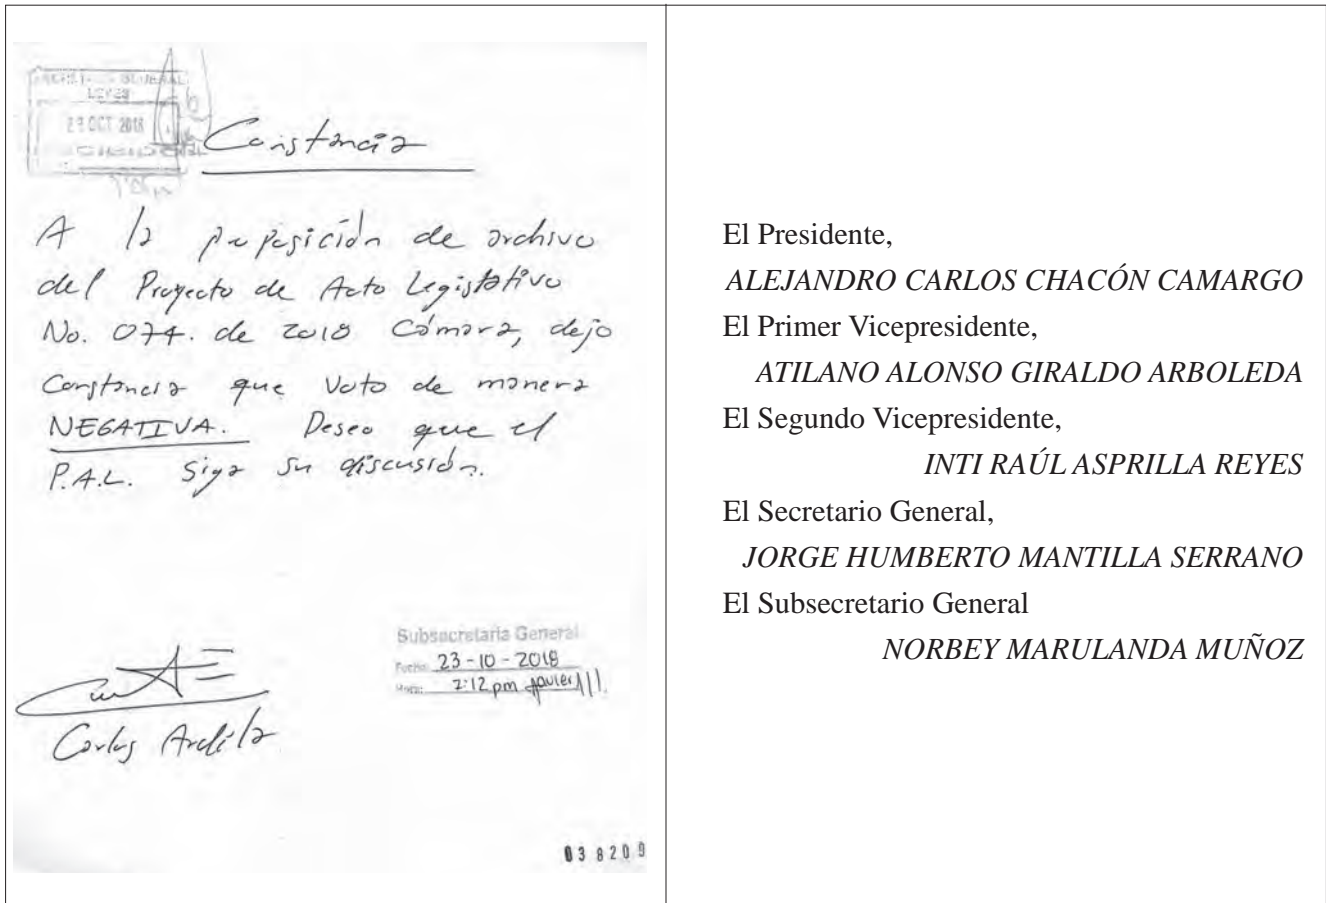 GENERAL
LEYES
23 OCT 2018
Constancia
A la proposición de archivo
del Proyecto de Acto Legislativo
No. 074. de 2018 Cámara, dejo
Constancia que Voto de manera
NEGATIVA. Deseo que el
P.A.L. Siga su discusión.
Subsecretaría General
Fecha: 23-10-2018
Hora: 2:12 pm Javier
Carlos Ardila
038209
El Presidente,
ALEJANDRO CARLOS CHACÓN CAMARGO
El Primer Vicepresidente,
ATILANO ALONSO GIRALDO ARBOLEDA
El Segundo Vicepresidente,
INTI RAÚL ASPRILLA REYES
El Secretario General,
JORGE HUMBERTO MANTILLA SERRANO
El Subsecretario General
NORBEY MARULANDA MUÑOZ